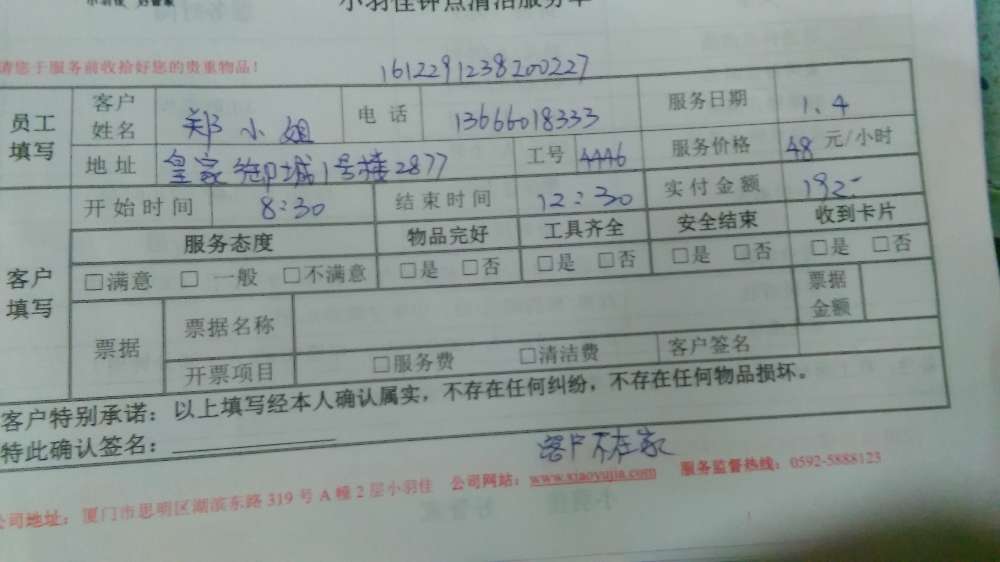 小羽佳 好管家
小羽佳钟点清洁服务单
请您于服务前收拾好您的贵重物品！
1612291238200227
员工填写 客户姓名 郑小姐 电话 13666018333 服务日期 1、4
地址 皇家御城1号楼2877 工号 4446 服务价格 48 元/小时
开始时间 8:30 结束时间 12:30 实付金额 192-
客户填写 服务态度 物品完好 工具齐全 安全结束 收到卡片
□满意 □ 一般 □不满意 □是 □否 □是 □否 □是 □否 □是 □否
票据 票据名称 票据金额
开票项目 □服务费 □清洁费 客户签名
客户特别承诺：以上填写经本人确认属实，不存在任何纠纷，不存在任何物品损坏。
特此确认签名：
客户不在家
公司地址：厦门市思明区湖滨东路 319 号 A 幢 2 层小羽佳 公司网站：www.xiaoyujia.com 服务监督热线：0592-5888123